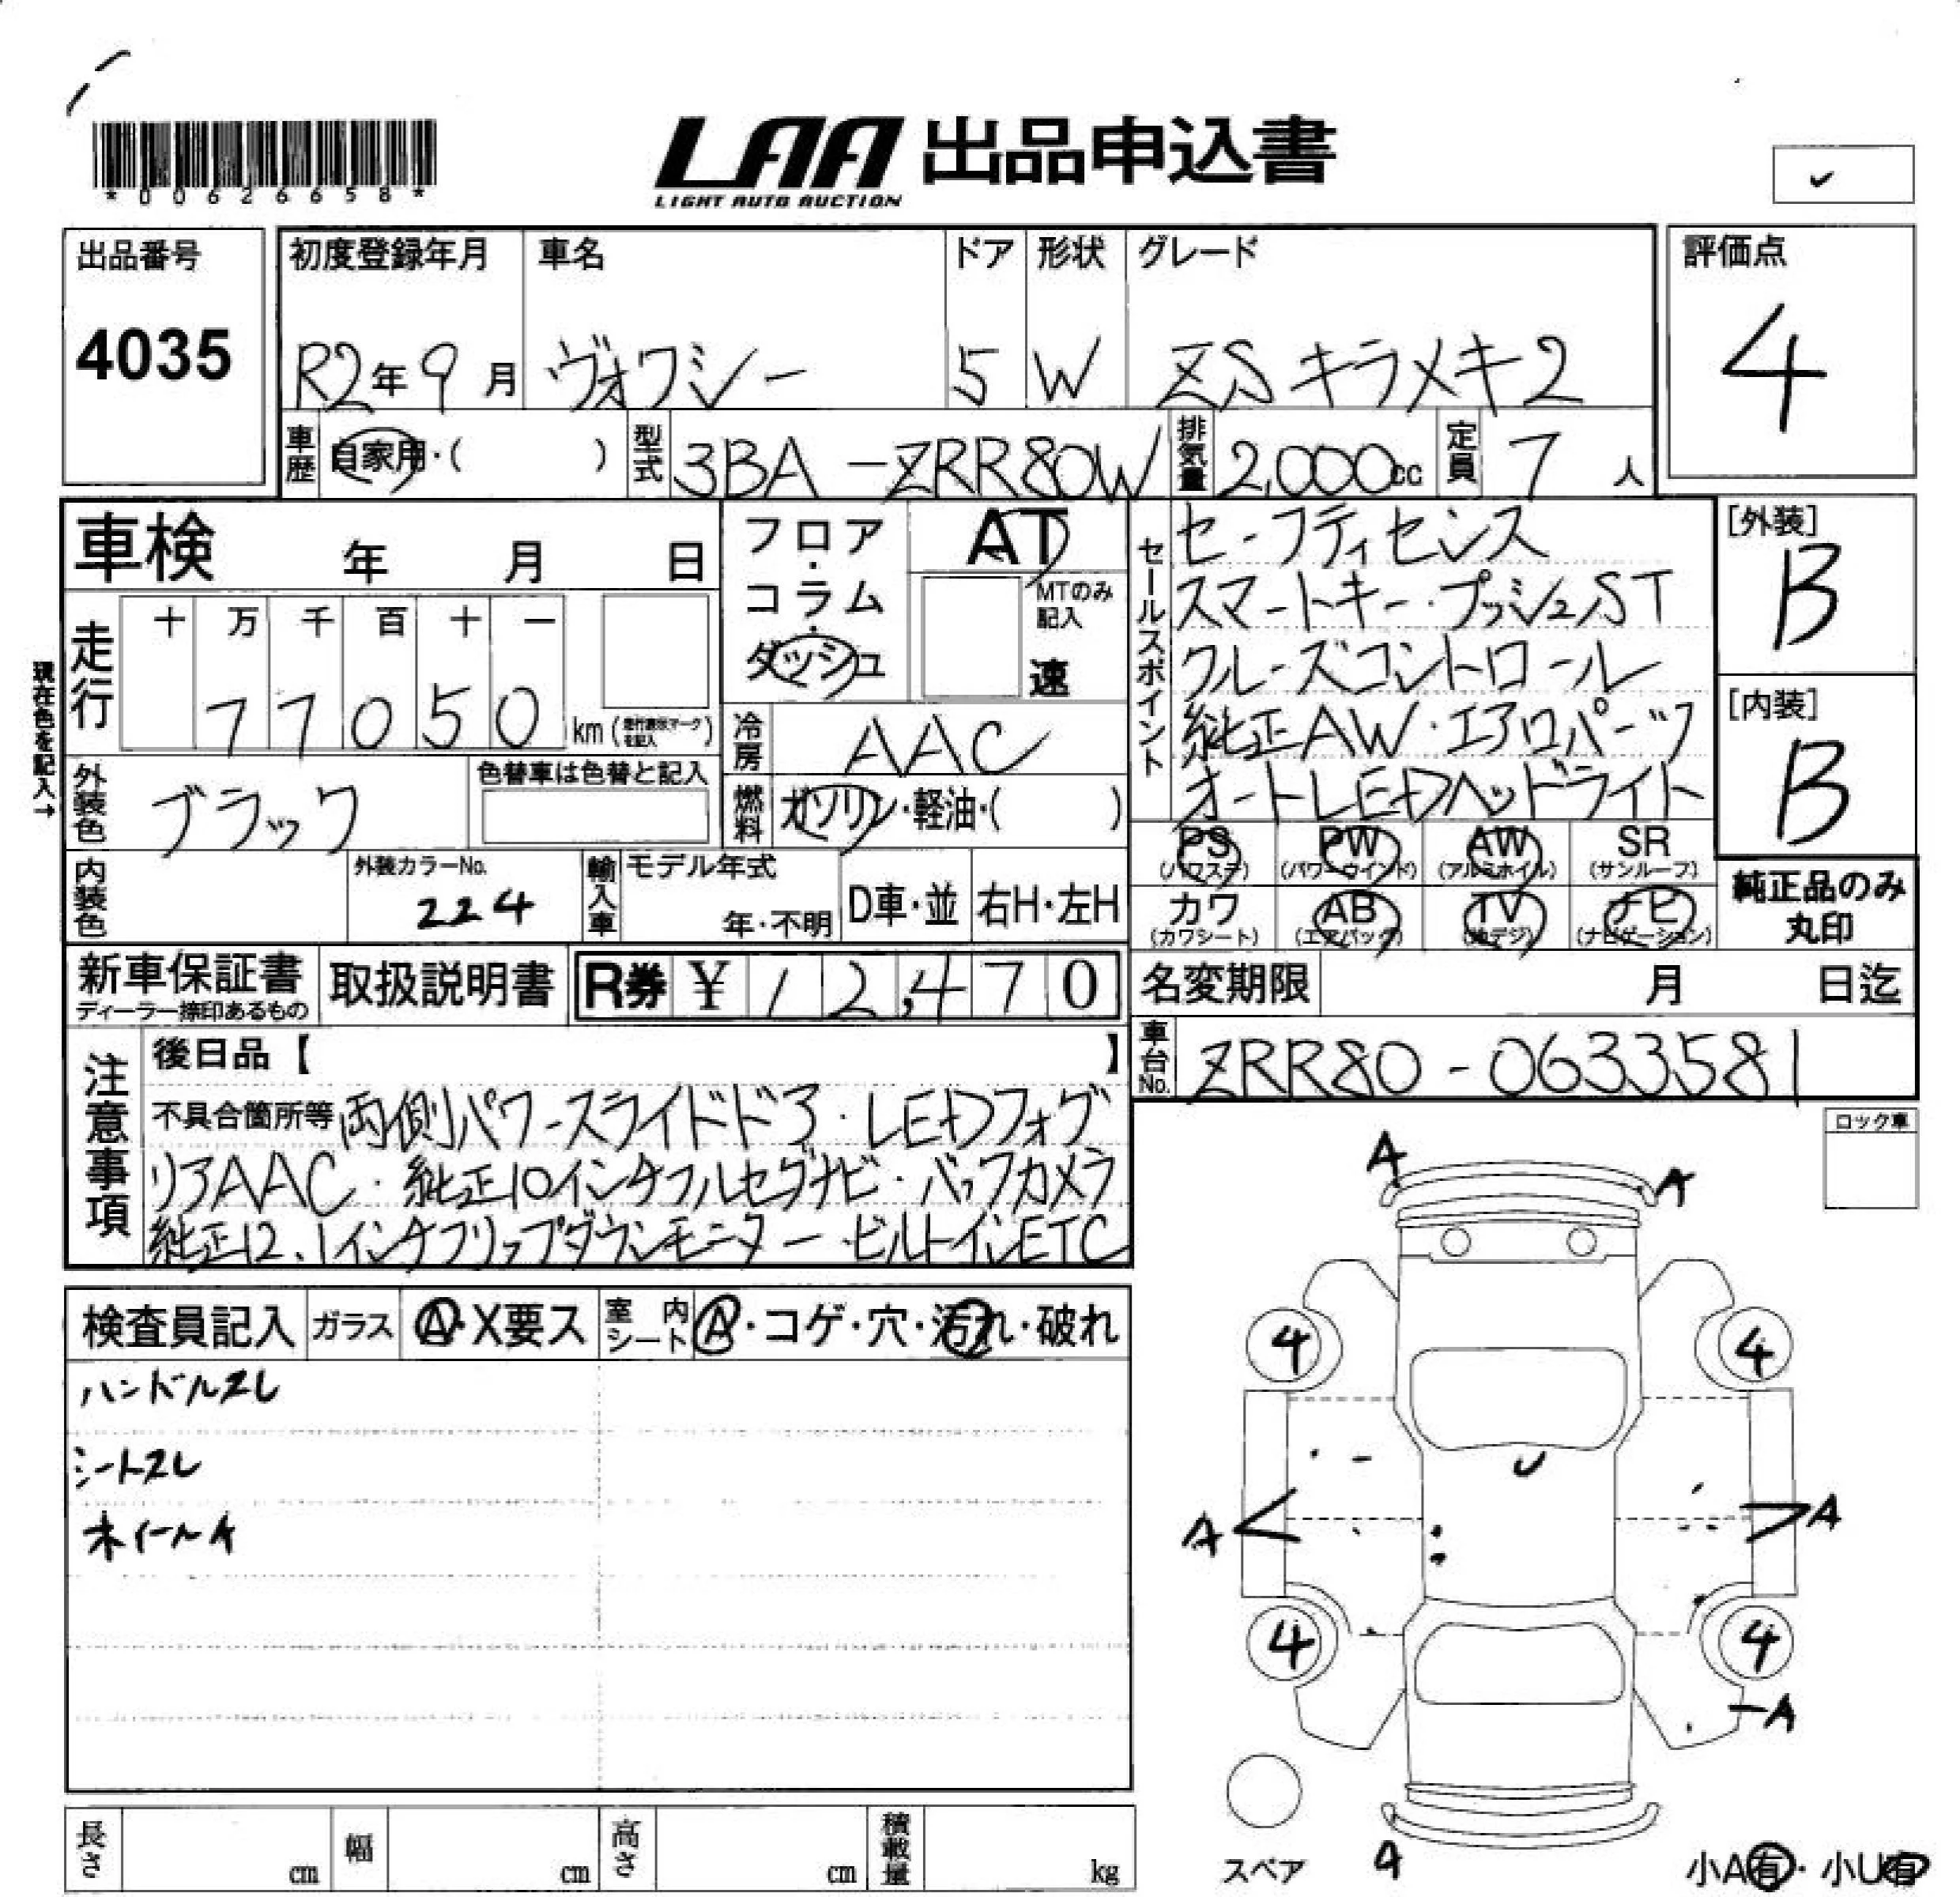 *00626658*
LAA 出品申込書
LIGHT AUTO AUCTION
出品番号
4035
初度登録年月
R2年9月
車名
ヴォクシー
ドア
5
形状
W
グレード
ZSキラメキ2
評価点
4
車歴
自家用・( )
型式
3BA-ZRR80W
排気量
2,000cc
定員
7人
車検 年 月 日
現在色を記入→
走行
十 万 千 百 十 一
77050 km
フロア・コラム・ダッシュ
AT
MTのみ記入
速
冷房
AAC
燃料
ガソリン・軽油・( )
セールスポイント
セーフティセンス
スマートキー・プッシュST
クルーズコントロール
純正AW・エアロパーツ
オートLEDヘッドライト
[外装]
B
[内装]
B
外装色
ブラック
色替車は色替と記入
内装色
外装カラーNo.
224
輸入車
モデル年式
年・不明
D車・並
右H・左H
PS (パワステ)
PW (パワーウインド)
AW (アルミホイル)
SR (サンルーフ)
カワ (カワシート)
AB (エアバッグ)
TV (地デジ)
ナビ (ナビゲーション)
純正品のみ丸印
新車保証書
ディーラー捺印あるもの
取扱説明書
R券 ¥12,470
名変期限 月 日迄
車台No.
ZRR80-0633581
注意事項
後日品【 】
不具合箇所等 両側パワースライドドア・LEDフォグ
リアAAC・純正10インチフルセグナビ・バックカメラ
純正12.1インチフリップダウンモニター・ビルトインETC
ロック車
検査員記入
ガラス
A・X要ス
室内シート
A・コゲ・穴・汚れ・破れ
ハンドルスレ
シートスレ
ホイールA
A
A
4
4
A
A
4
4
A
スペア
小A有・小U有
長さ cm
幅 cm
高さ cm
積載量 kg